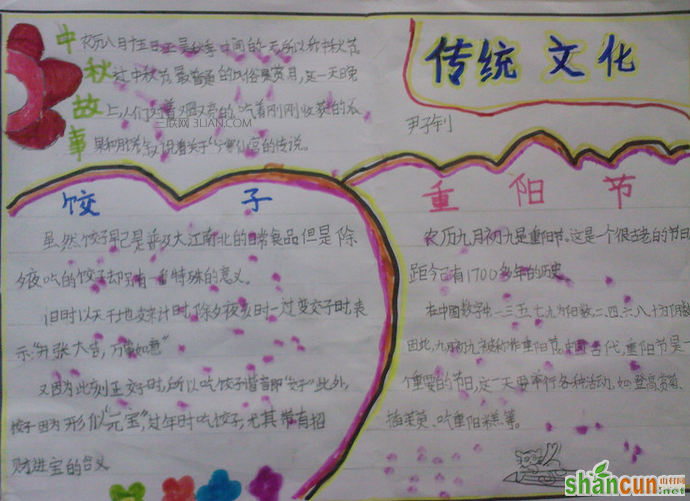 中秋故事
农历八月十五日正是秋季中间的一天所以称中秋节
过中秋节最普遍的风俗是赏月,这一天晚
上,人们对着又圆又亮的,吃着刚刚收获的水
果和月饼,说着关于广寒仙宫的传说。
三联网 3LIAN.COM
传统 文化
尹子钊
饺 子
虽然饺子早已是普及大江南北的日常食品但是除
夕夜吃的饺子却另有一番特殊的意义。
旧时以天干地支来计时,除夕夜亥时一过变交子时,表
示"开张大吉,万事如意"
又因为此刻正交子时,所以吃饺子谐音即"交子"此外,
饺子因为形似"元宝",过年时吃饺子,尤其带有招
财进宝的含义
重 阳 节
农历九月初九是重阳节。这是一个很古老的节日
距今已有1700多年的历史
在中国数字中一三五七九为阳数,二、四、六、八、十为阴数
因此,九月初九被称作重阳节,中国古代,重阳节是一
个重要的节日,这一天要举行各种活动,如登高赏菊、
插茱萸、吃重阳糕等。
shancun
山村网
.net